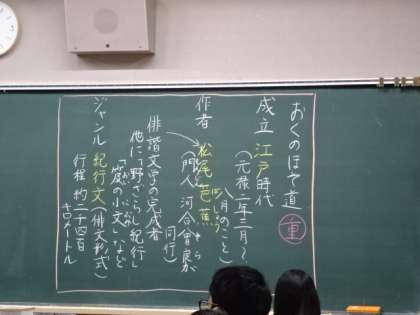 おくのほそ道 重
成立 江戸時代
(元禄二年三月〜
八月のこと)
作者 松尾芭蕉
まつお ばしょう
(門人 河合曾良が
そら
同行)
俳諧文学の完成者
他に「野ざらし紀行」
「笈の小文」など
ジャンル 紀行文(俳文形式)
行程 約二千四百
キロメートル